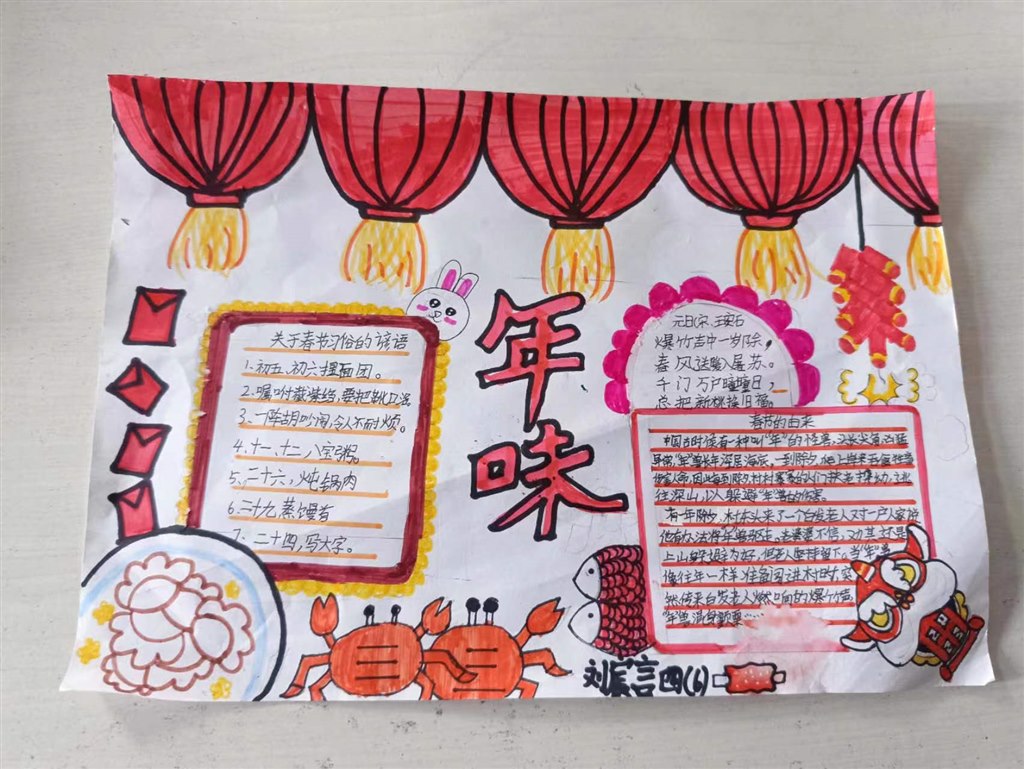 关于春节习俗的谚语
1、初五、初六捏面团。
2、嘱咐裁缝给,要把靴
3、一阵胡吵闹,令人不耐烦。
4、十一、十二八宝粥。
5、二十六,炖锅肉
6、二十九,蒸馒首
7、二十四,写大字。
年味
元日(宋、王安石
爆竹声中一岁除,
春风送暖入屠苏。
千门万户曈曈日,
总把新桃换旧福。
春节的由来
中国古时候有一种叫“年”的怪兽,头长尖角,凶猛
异常,“年”兽长年深居海底,一到除夕,爬上岸来吞食牲畜
伤害人命,因此每到除夕,村村寨寨的人们扶老携幼,逃
往深山,以躲避“年”兽的伤害。
有一年除夕,村东头来了一个白发老人对一户人家说
他有办法将年兽驱走,老婆婆不信,劝其还是
上山躲避为好,但老人坚持留下,当“年”兽
像往年一样准备闯进村时,突
然传来白发老人燃响的爆竹声,
“年”兽浑身颤栗……
刘 言四(6)